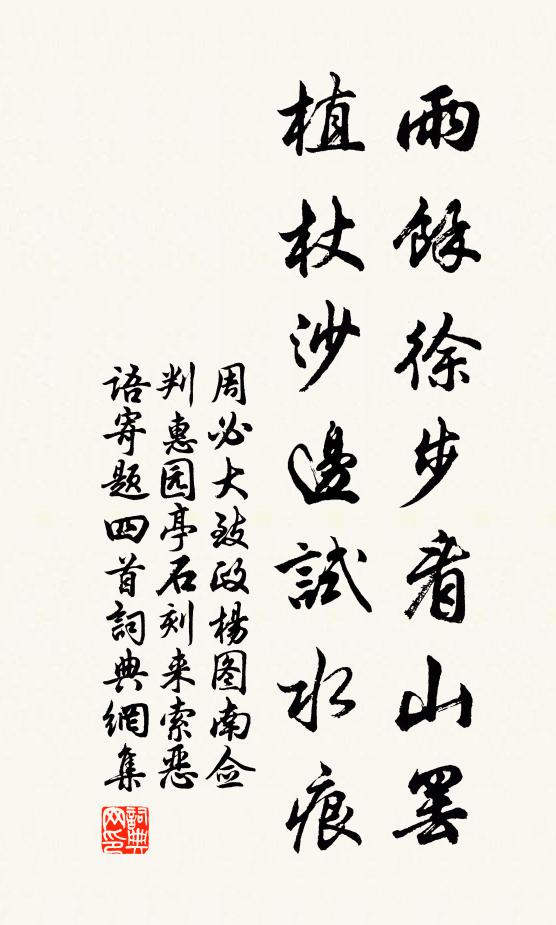 雨餘徐步看山罢
植杖沙邊試水痕
周必大致政楊图南佥
判惠园亭石刻来索恶
语寄题四首詞典網集
詞典網印